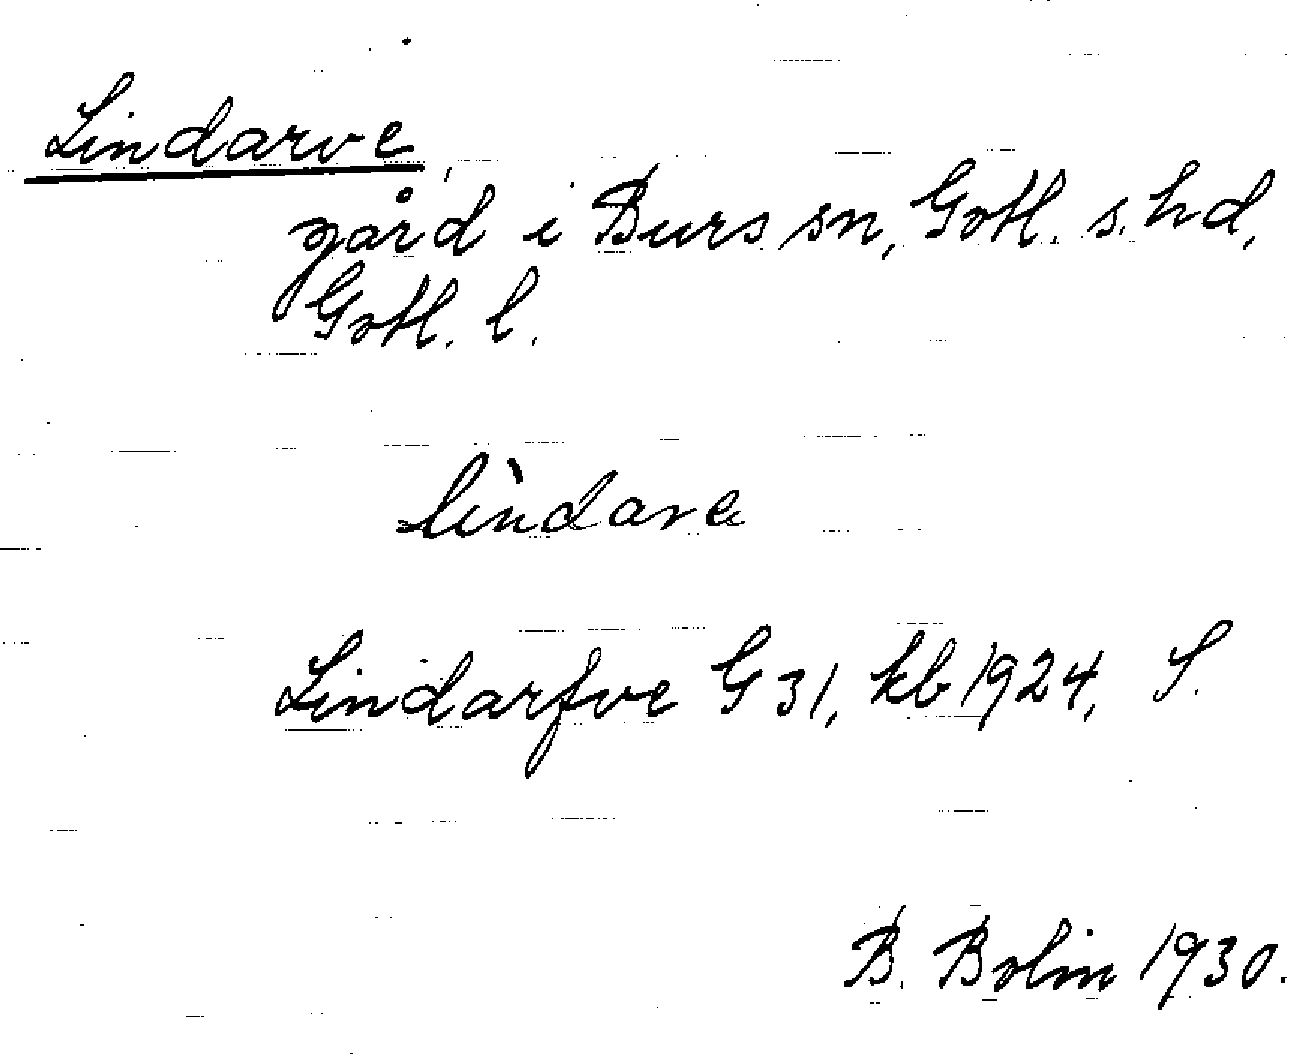 Lindarve,
gård i Burs sn, Gotl. s. hd,
Gotl. l.
lìndara
Lindarfve G 31, kb 1924, S.
B. Bolin 1930.